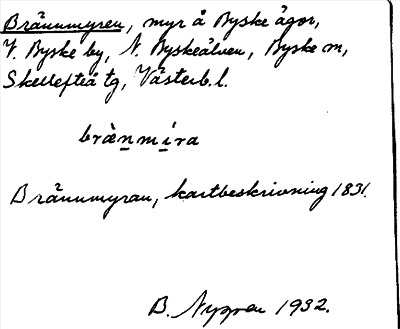 Brännmyren, myr å Byske ägor,
V. Byske by, N. Byskeälven, Byske sn,
Skellefteå tg, Västerb. l.
bræ̀nmíra
Brännmyran, kartbeskrivning 1831.
B. Nygren 1932.